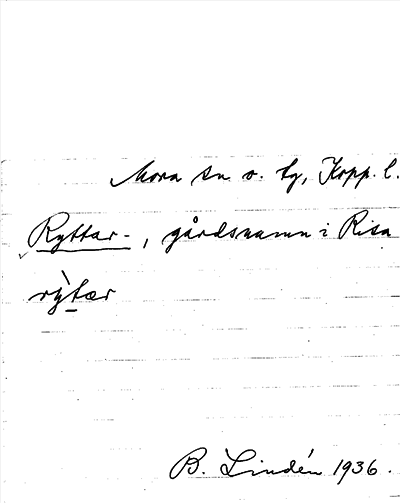 Mora sn o. tg, Kopp. l.
Ryttar-, gårdsnamn i Risa
rỳtær
B. Lindén 1936.